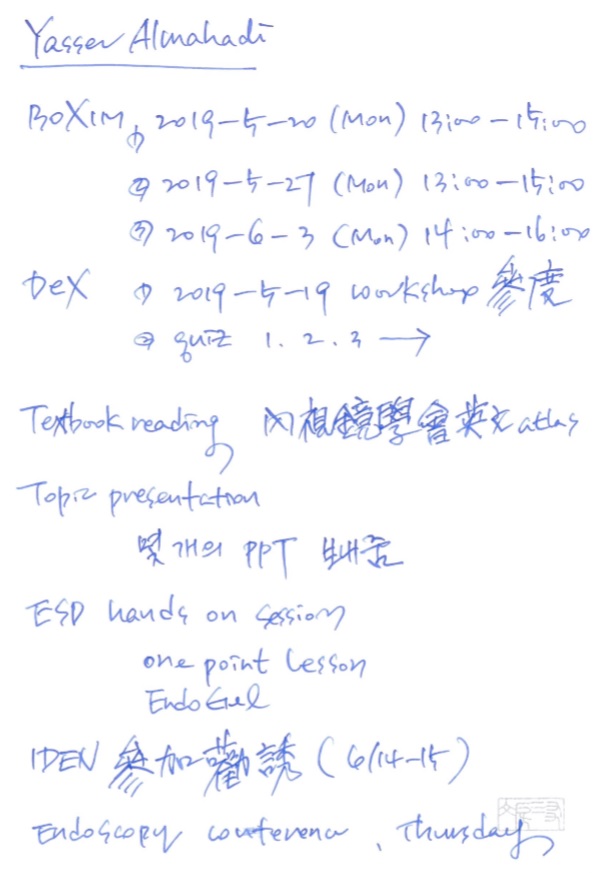 Yasser Almahadi
BOXIM ① 2019-5-20 (Mon) 13:00-15:00
② 2019-5-27 (Mon) 13:00-15:00
③ 2019-6-3 (Mon) 14:00-16:00
DeX ① 2019-5-19 workshop 參度
② quiz 1. 2. 3 →
Textbook reading 內視鏡學會英文 atlas
Topic presentation
몇개의 PPT 보내줌
ESD hands on session
one point lesson
EndoGel
IDEN 參加勸誘 (6/14-15)
Endoscopy conference, Thursday